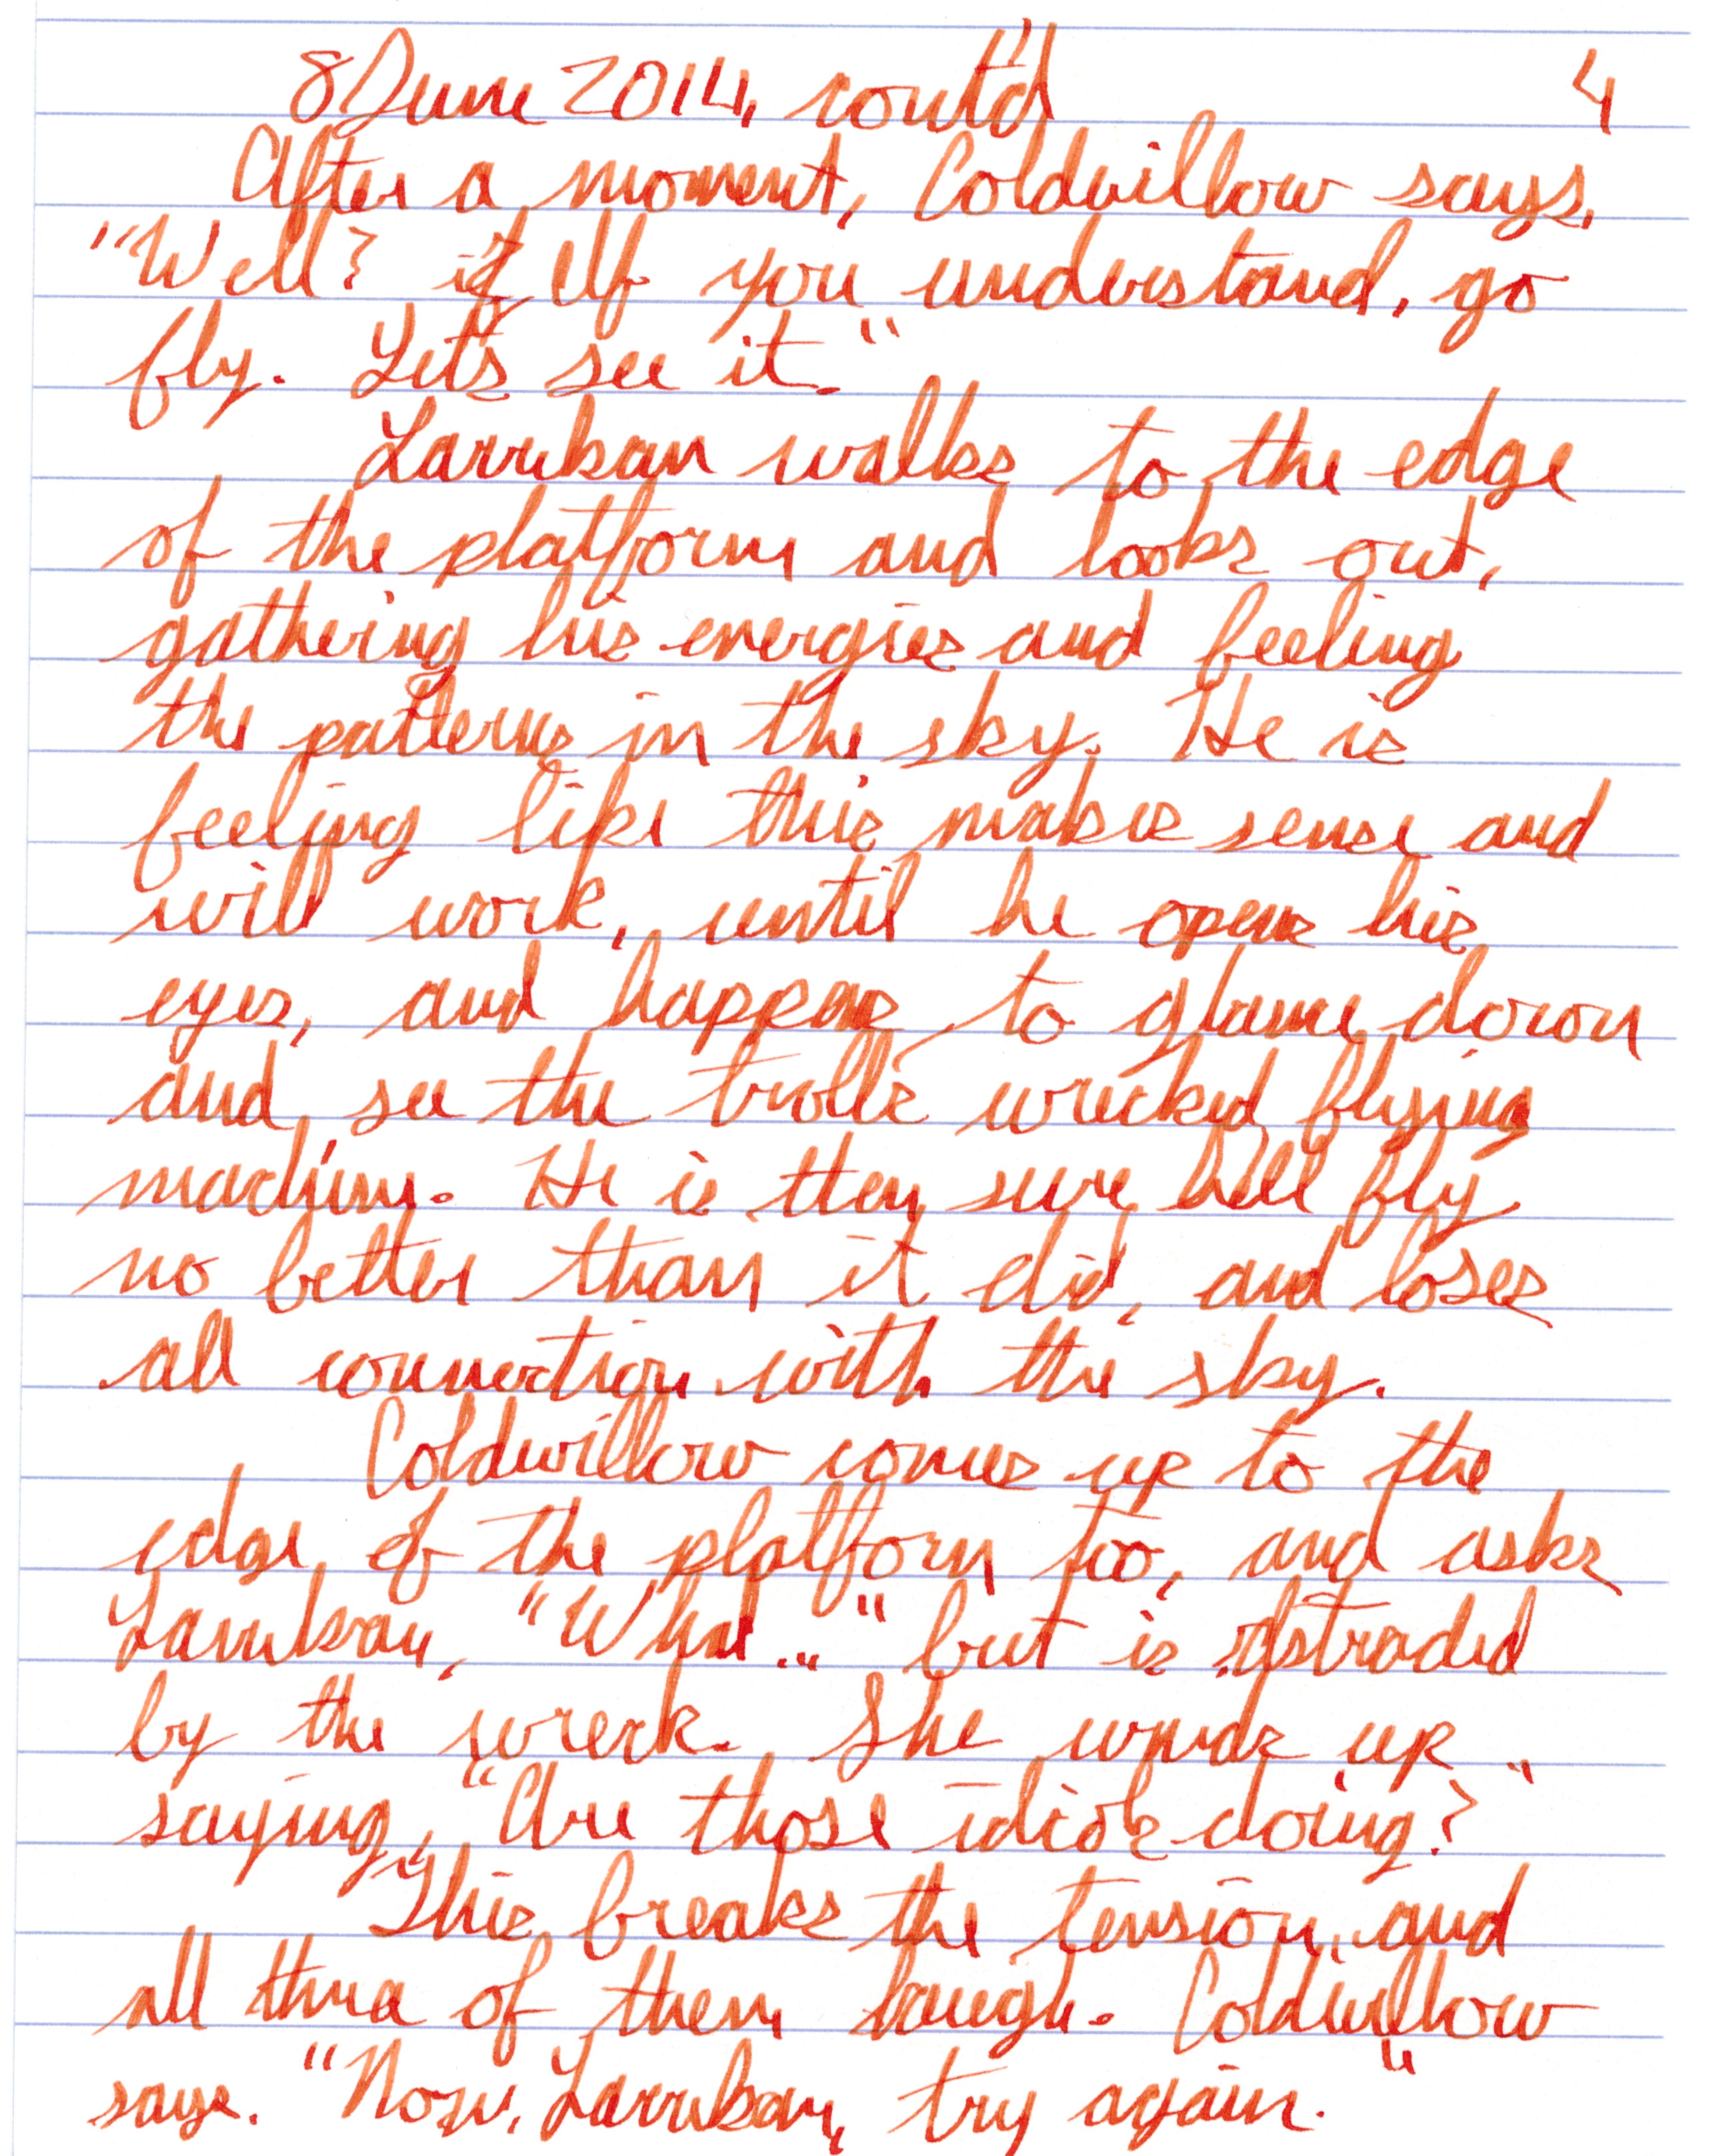 8 June 2014, cont'd 4
After a moment, Coldwillow says,
"Well? if If you understand, go
fly. Let's see it."
Larrikan walks to the edge
of the platform and looks out,
gathering his energies and feeling
the patterns in the sky. He is
feeling like this makes sense and
will work, until he opens his
eyes, and happens to glance down
and see the trolls wrecked flying
machine. He is then sure he'll fly
no better than it did, and loses
all connection with the sky.
Coldwillow comes up to the
edge of the platform too, and asks
Larrikan, "What..." but is distracted
by the wreck. She winds up
saying, "Are those idiots doing?"
This breaks the tension, and
all three of them laugh. Coldwillow
says. "Now, Larrikan, try again."